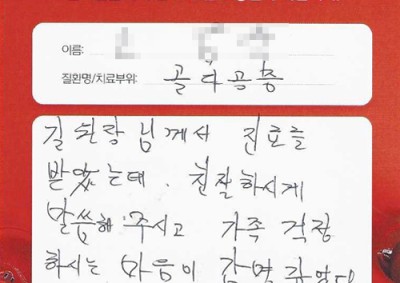 이름:
질환명/치료부위: 골다공증
길 원장님께서 진료를
받았는데. 친절하시게
말씀해 주시고 가족 걱정
하시는 마음이